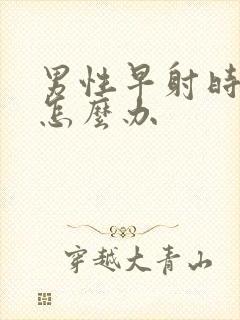 男性早射时
怎麼办
穿越大青山